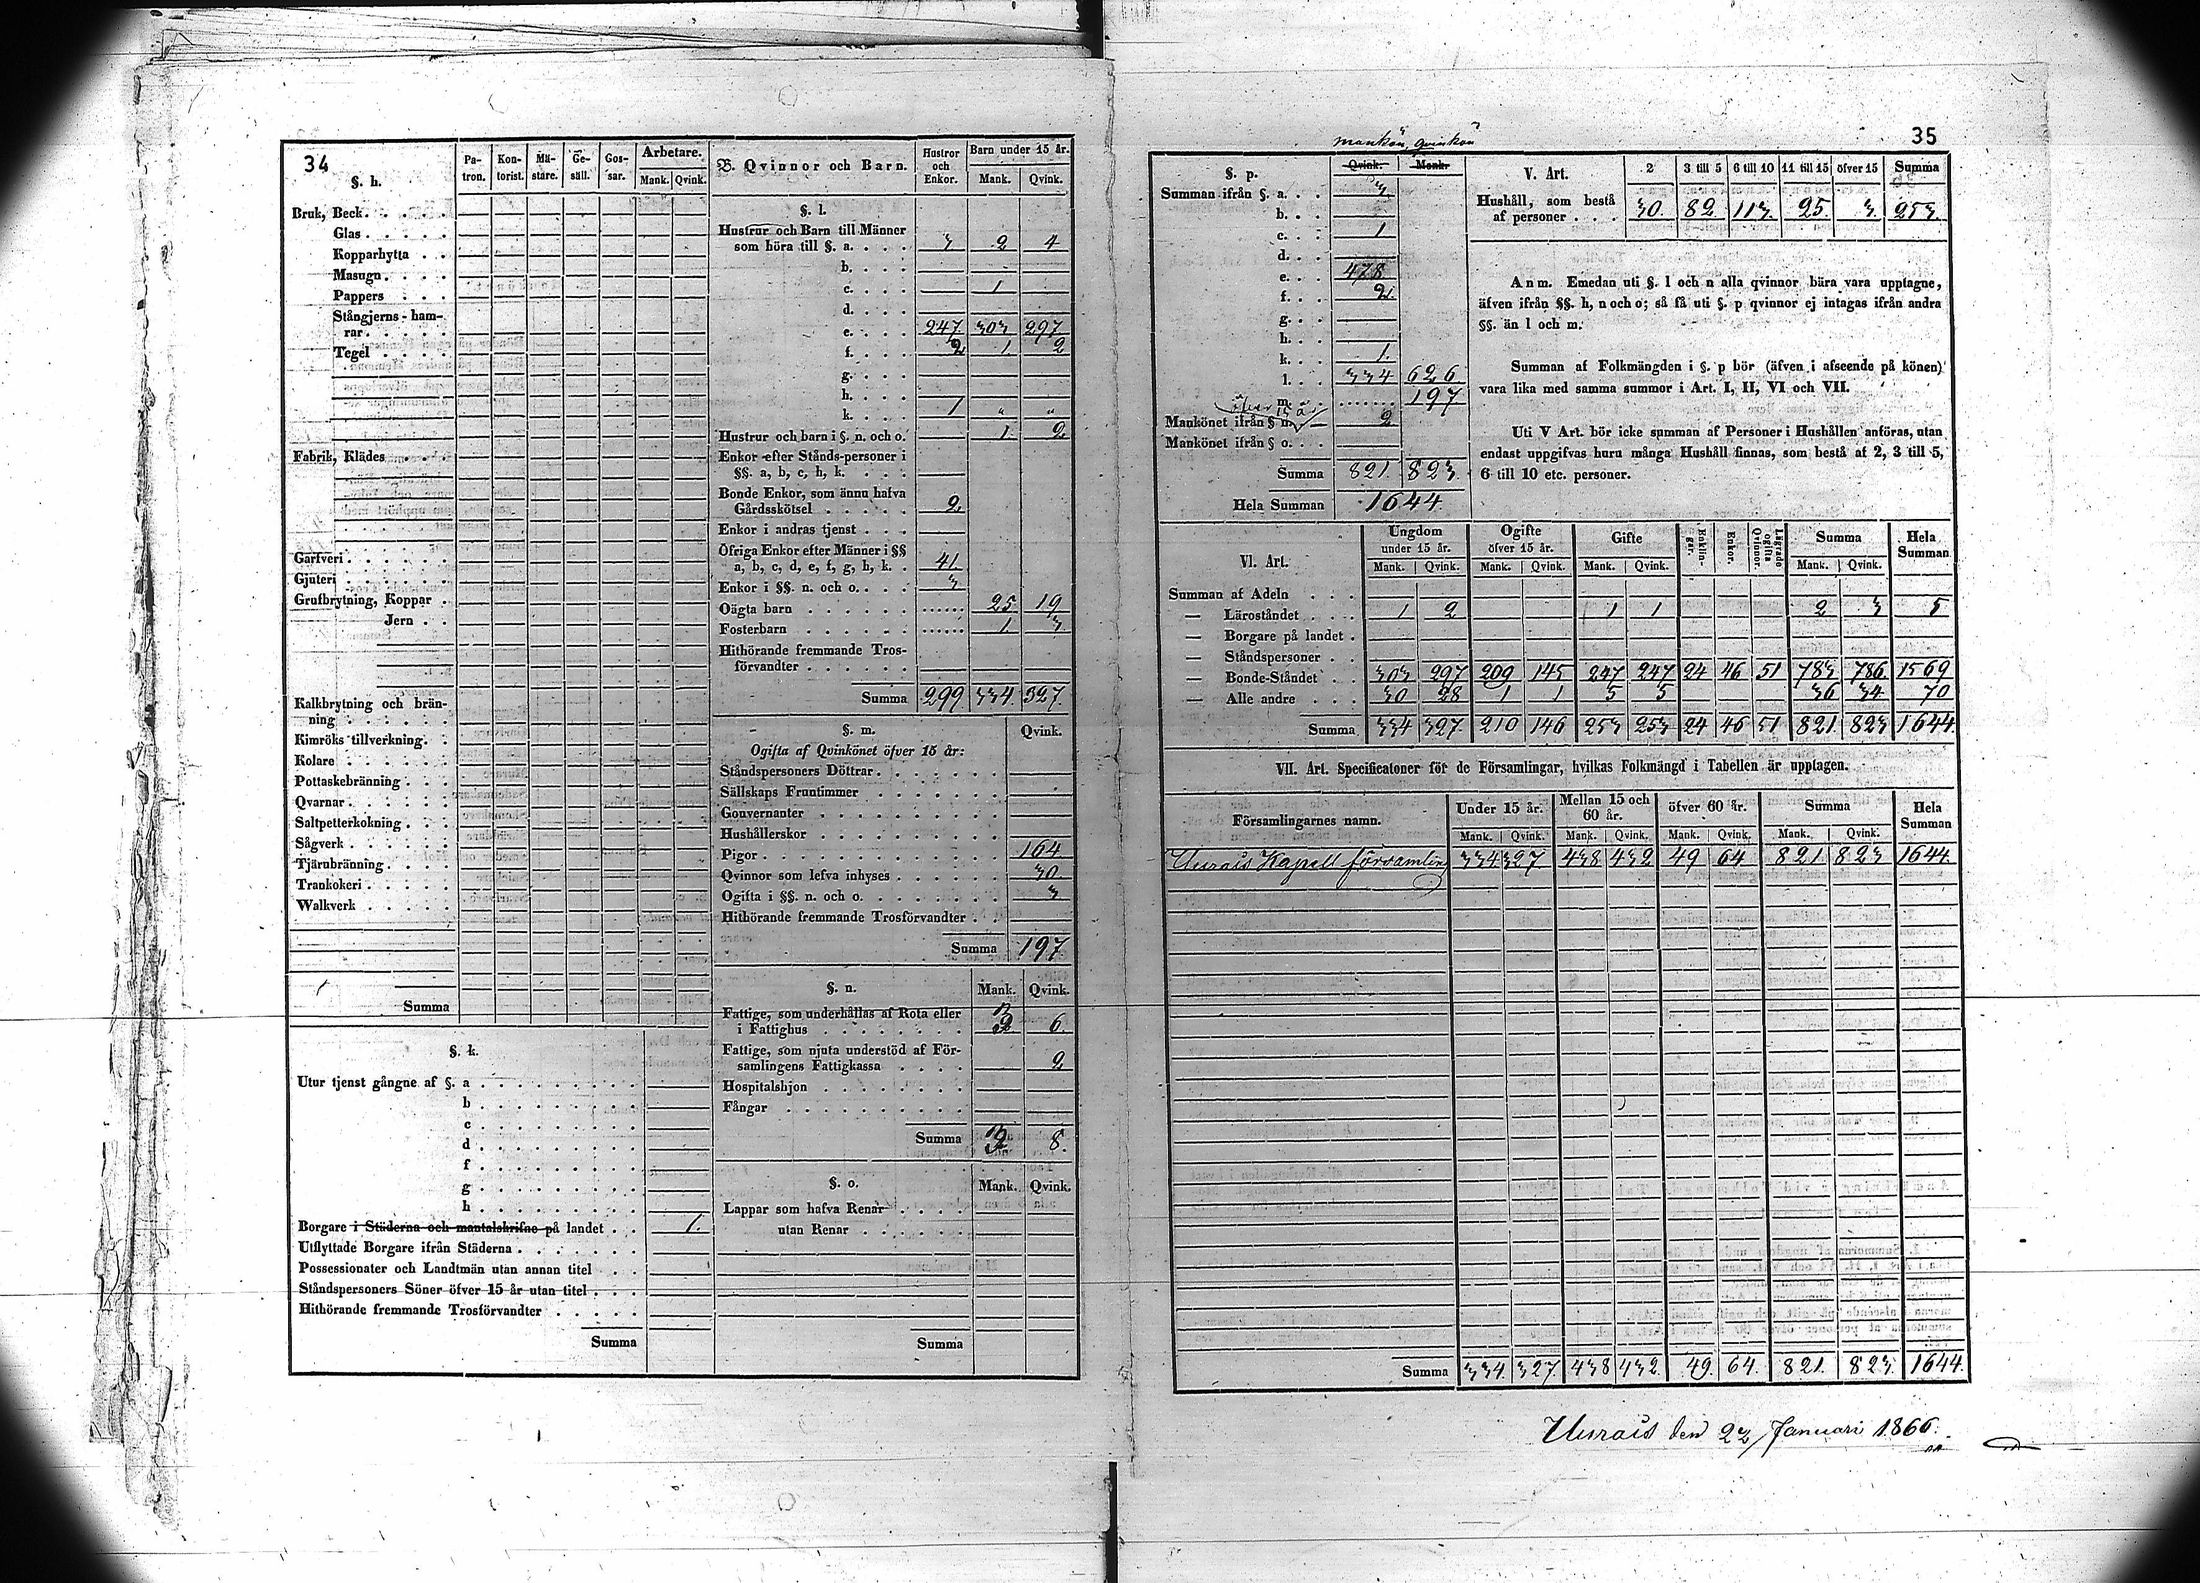 34
§. h.
Pa-tron. Kon-torist. Mä-stare. Ge-säll. Gos-sar. Arbetare.
Mank. Qvink.
Bruk, Beck
Glas
Kopparhytta
Masugn
Pappers
Stångjerns-ham-
rar
Tegel
Fabrik, Klädes
Garfveri
Gjuteri
Grufbrytning, Koppar
Jern
Kalkbrytning och brän-
ning
Kimröks tillverkning.
Kolare
Pottaskebränning
Qvarnar
Saltpetterkokning
Sågverk
Tjärubränning
Trankokeri
Walkverk
Summa
§. k.
Utur tjenst gångne af §. a
b
c
d
f
g
h
Borgare i Städerna och mantalskrifne på landet 1.
Utflyttade Borgare ifrån Städerna
Possessionater och Landtmän utan annan titel
Ståndspersoners Söner öfver 15 år utan titel
Hithörande fremmande Trosförvandter
Summa
B. Qvinnor och Barn. Hustror och Enkor. Barn under 15 år.
Mank. Qvink.
§. l.
Hustrur och Barn till Männer
som höra till §. a. 3 2 4
b.
c. 1
d.
e. 247 303 297
f. 2 1. 2
g.
h.
k. 1 " "
Hustrur och barn i §. n. och o. 1. 2
Enkor efter Stånds-personer i
§§. a, b, c, h, k.
Bonde Enkor, som ännu hafva
Gårdsskötsel 2.
Enkor i andras tjenst
Öfriga Enkor efter Männer i §§
a, b, c, d, e, f, g, h, k. 41.
Enkor i §§. n. och o. 3
Oägta barn 25 19
Fosterbarn 1. 3
Hithörande fremmande Tros-
förvandter
Summa 299 334. 327.
§. m. Qvink.
Ogifta af Qvinkönet öfver 15 år:
Ståndspersoners Döttrar
Sällskaps Fruntimmer
Gouvernanter
Hushållerskor
Pigor 164
Qvinnor som lefva inhyses 30.
Ogifta i §§. n. och o. 3
Hithörande fremmande Trosförvandter
Summa 197.
§. n. Mank. Qvink.
Fattige, som underhållas af Rota eller
i Fattighus 6.
Fattige, som njuta understöd af För-
samlingens Fattigkassa 2
Hospitalshjon
Fångar
Summa 8.
§. o. Mank. Qvink.
Lappar som hafva Renar
utan Renar
Summa
35
mankön qvinkön
§. p. Qvink. Mank.
Summan ifrån §. a. 3
b.
c. 1
d.
e. 478
f. 2.
g.
h.
k. 1.
l. 334 626
m. 197
öfver 15 år
Mankönet ifrån § n. 2
Mankönet ifrån § o.
Summa 821. 823.
Hela Summan 1644.
V. Art. 2 3 till 5 6 till 10 11 till 15 öfver 15 Summa
Hushåll, som bestå
af personer 30. 82 113. 25 3. 253.
Anm. Emedan uti §. l och n alla qvinnor bära vara upptagne,
äfven ifrån §§. h, n och o; så få uti §. p qvinnor ej intagas ifrån andra
§§. än l och m.
Summan af Folkmängden i §. p bör (äfven i afseende på könen)
vara lika med samma summor i Art. I, II, VI och VII.
Uti V Art. bör icke summan af Personer i Hushållen anföras, utan
endast uppgifvas huru många Hushåll finnas, som bestå af 2, 3 till 5,
6 till 10 etc. personer.
VI. Art. Ungdom under 15 år. Ogifte öfver 15 år. Gifte Enklin-gar. Enkor. Lägrade ogifta Qvinnor. Summa Hela Summan
Mank. Qvink. Mank. Qvink. Mank. Qvink. Mank. Qvink.
Summan af Adeln
— Läroståndet 1 2 1 1 2 3 5
— Borgare på landet
— Ståndspersoner
— Bonde-Ståndet 303 297 209 145 247 247 24 46 51 783 786 1569
— Alle andre 30 28 1 1 5 5 36 34 70
Summa 334 327. 210 146 253 253 24 46 51 821. 823 1644.
VII. Art. Specificatoner för de Församlingar, hvilkas Folkmängd i Tabellen är upptagen.
Församlingarnes namn. Under 15 år. Mellan 15 och 60 år. öfver 60 år. Summa Hela Summan
Mank. Qvink. Mank. Qvink. Mank. Qvink. Mank. Qvink.
Uurais Kapell församling 334 327 438 432 49 64 821 823 1644.
Summa 334. 327. 438 432. 49. 64. 821. 823. 1644.
Uurais den 23 Januari 1866.